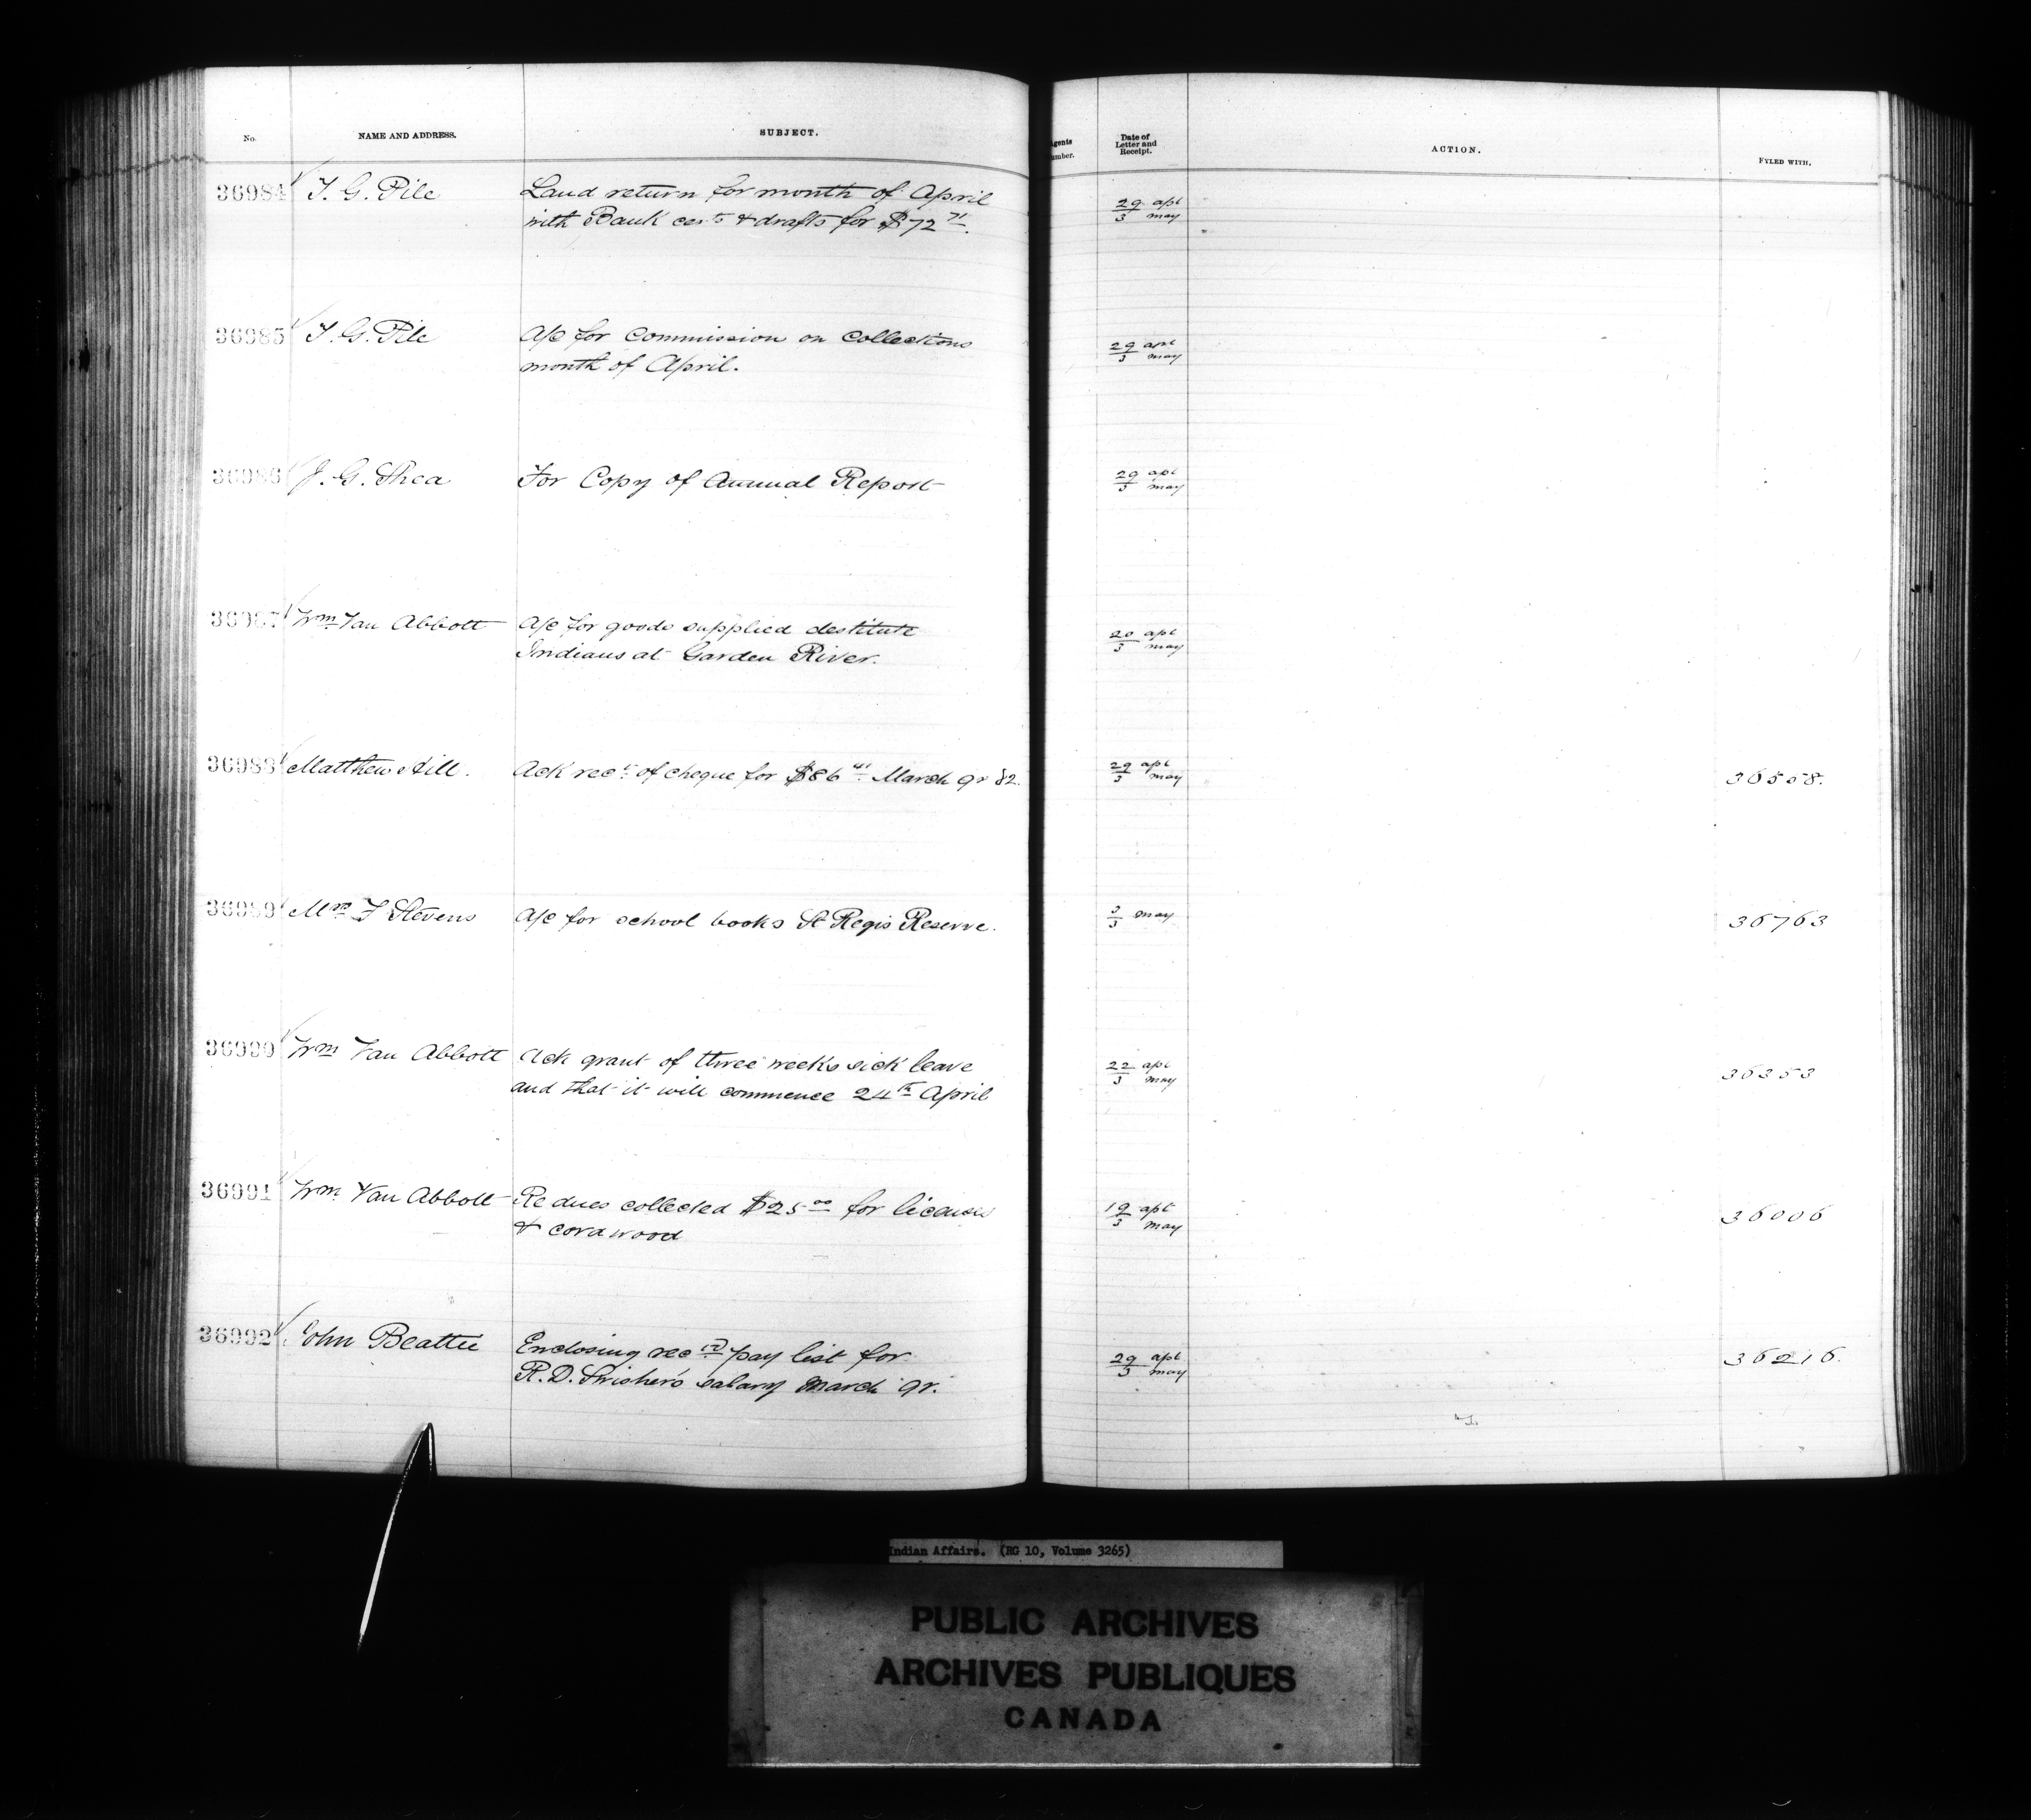 No. NAME AND ADDRESS. SUBJECT. Agents Number. Date of Letter and Receipt. ACTION. FYLED WITH.
36984 T. G. Pile Land return for month of April 29 apl
with Bank certs & drafts for $72 71. 3 may
36985 T. G. Pile A/c for Commission on Collections 29 apl
month of April. 3 may
36986 J. G. Shea For Copy of Annual Report 29 apl
3 may
36987 Wm Van Abbott A/c for goods supplied destitute 20 apl
Indians at Garden River. 3 may
36988 Matthew Hill. Ack rect of cheque for $86 41 March qr 82. 29 apl 36508.
3 may
36989 Mrs F Stevens A/c for school books St Regis Reserve. 3 may 36763
3
36990 Wm Van Abbott Ack grant of three weeks sick leave 22 apl 36353
and that it will commence 24th April 3 may
36991 Wm Van Abbott Re dues collected $25 00 for licenses 19 apl 36006
& cordwood 3 may
36992 John Beattie Enclosing recd pay list for 29 apl 36216.
R. D. Swisher's salary March qr. 3 may
Indian Affairs. (RG 10, Volume 3265)
PUBLIC ARCHIVES
ARCHIVES PUBLIQUES
CANADA